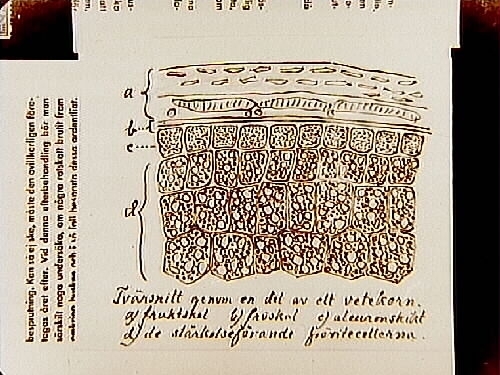 a
b
c
d
Tvärsnitt genom en del av ett vetekorn.
a) fruktskal b) fröskal c) aleuronskikt
d) de stärkelseförande frövitecellerna.
besprutning. Kan så ej ske, måste den ovillkorligen före-
tagas året efter. Vid denna efterbehandling bör man
särskilt noga undersöka, om några rotskott brutit fram